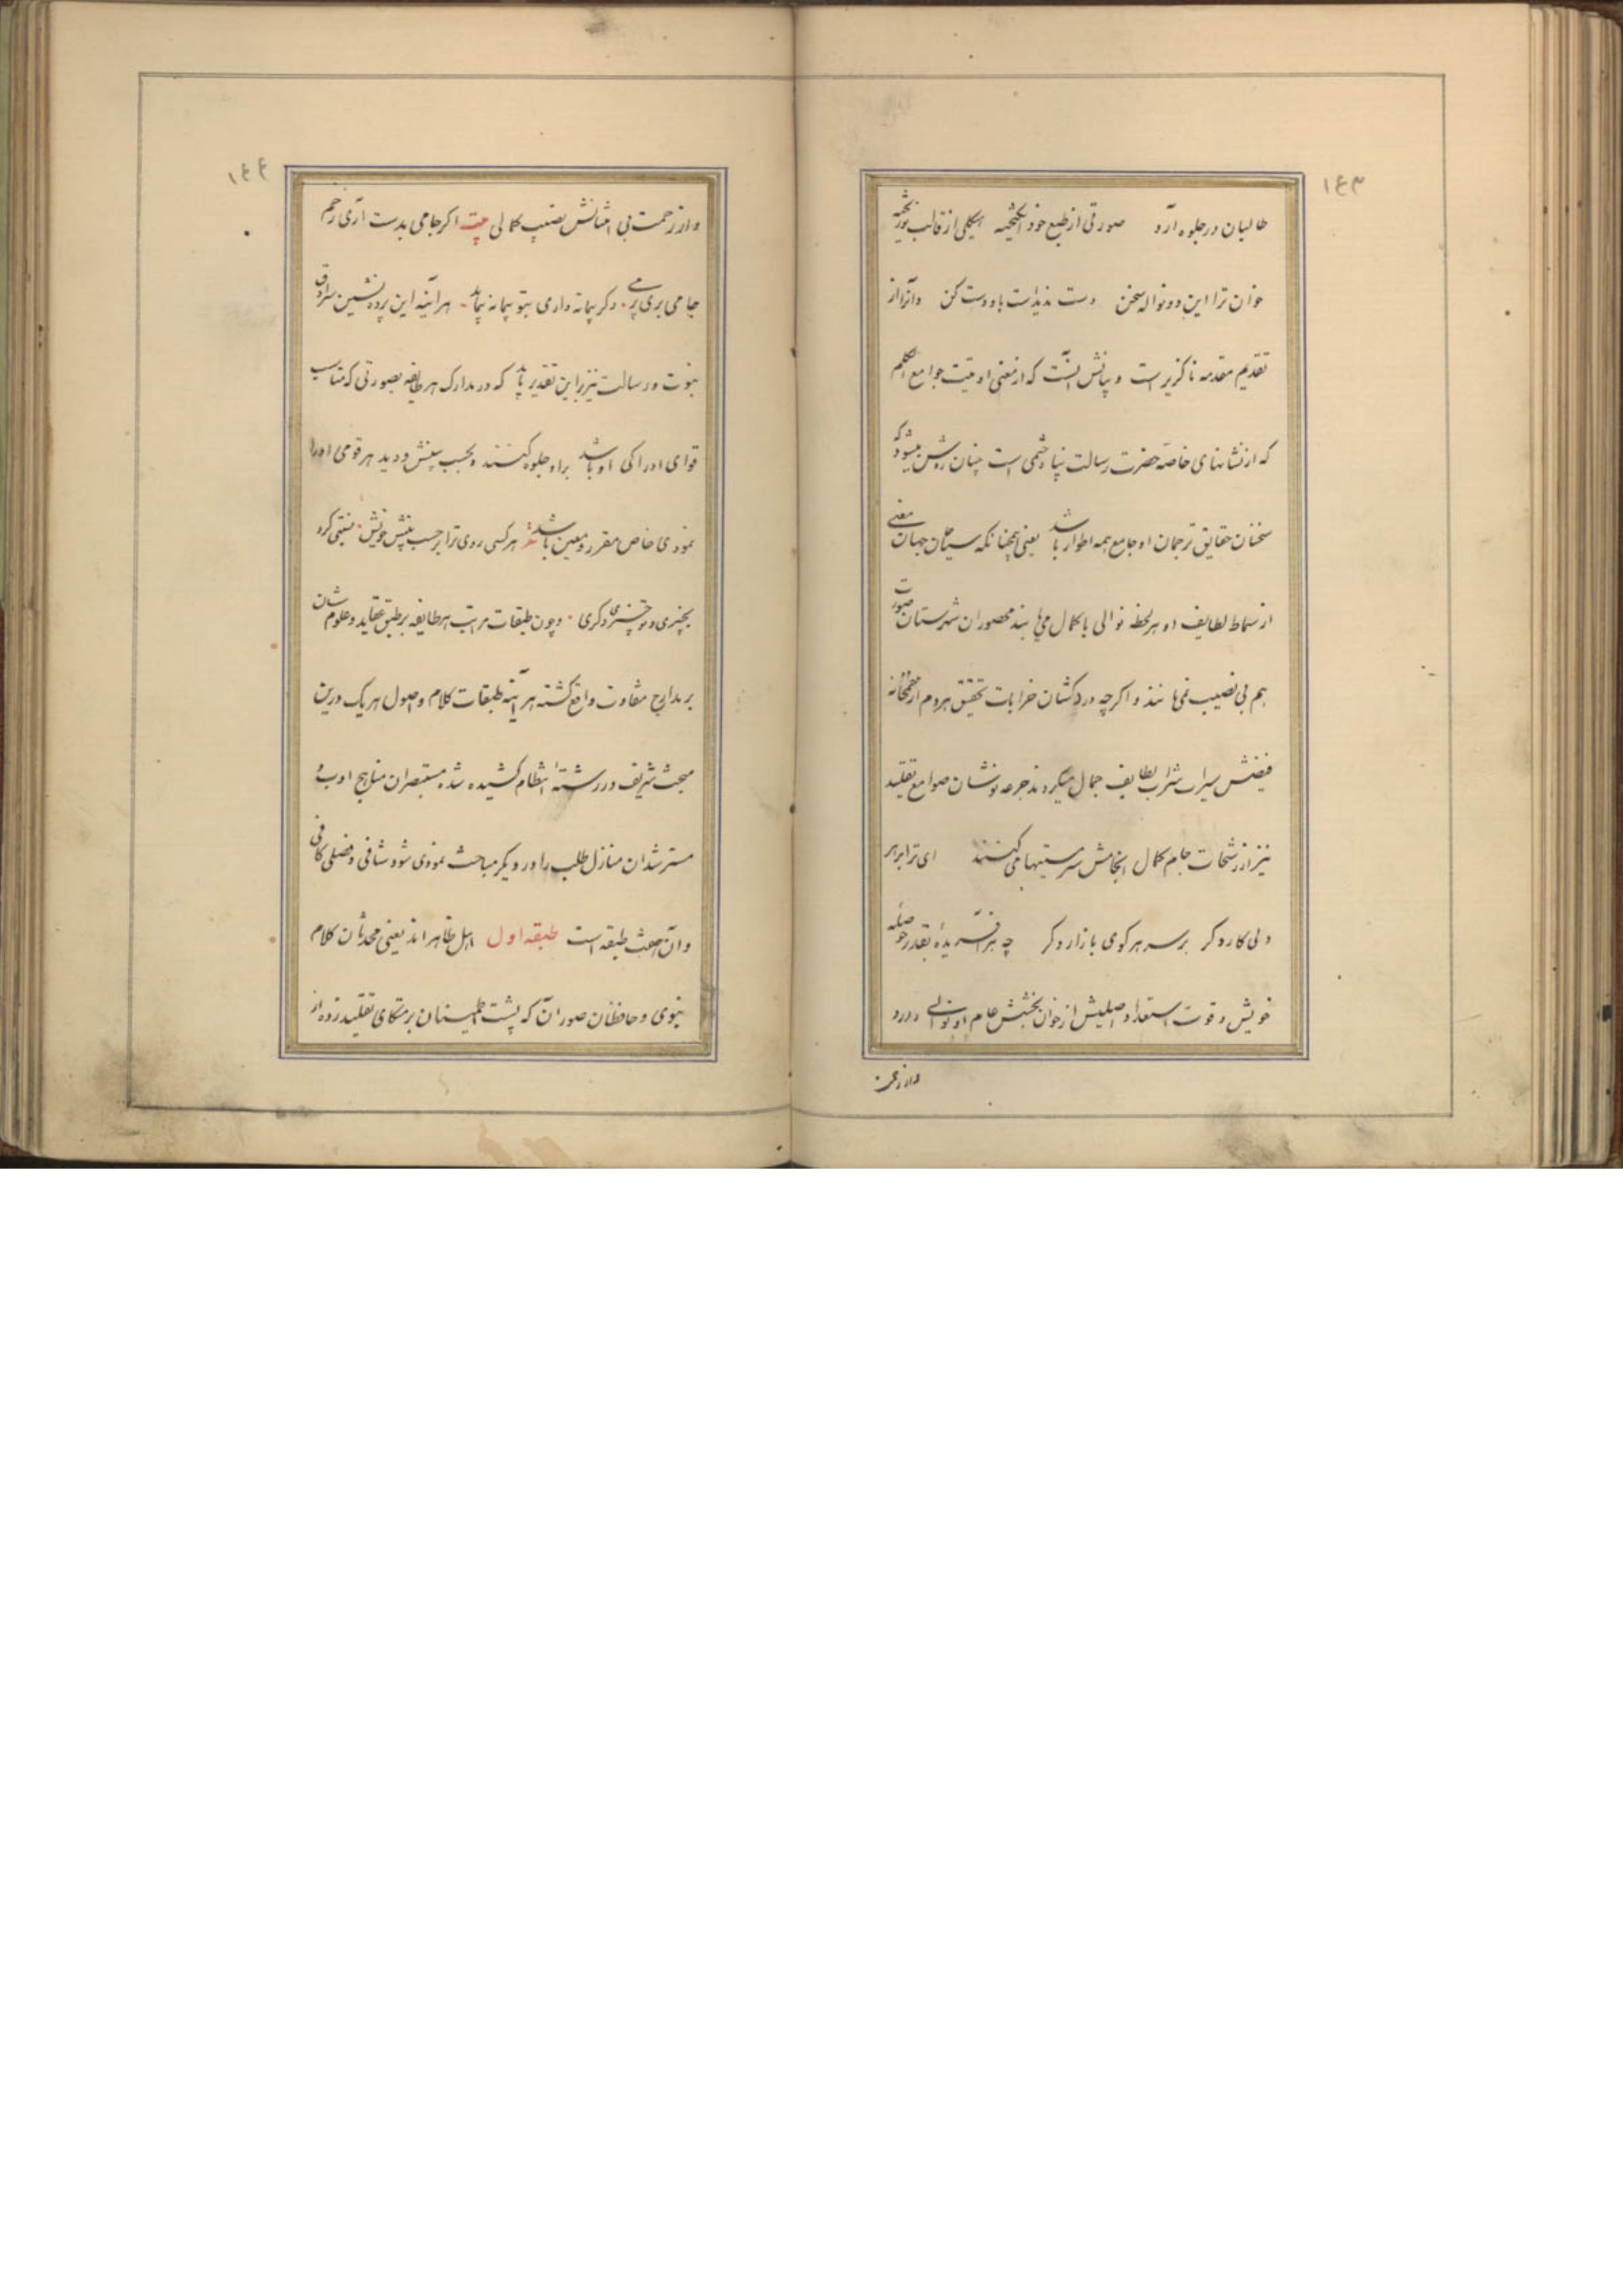 ١٤٣
طالبان در جلوه آرد صورتی از طبع خود انگیخته هیکلی از قالب نو ریخته
خوان ترا این دو نواله سخن دست نذیدست باو دست کن و آنرا از
تقدیم مقدمه ناگزیر است و بیانش آنست که از معنی اوتیت جوامع الکلم
که از نشانهای خاصه حضرت رسالت پناه ختمی است چنان روشن میشود که
سخنان حقایق ترجمان او جامع همه اطوار باشد یعنی همچنانکه سیاحان جهان معنی
از سماط لطایف او هر لحظه نوالی با کمال می‌یابند محصوران شهرستان صورت
هم بی نصیب نمی‌مانند و اگرچه دردکشان خرابات تحقیق هر دم از خمخانه
فیضش سیراب شراب لطایف جمال میگردند جرعه نوشان صوامع تقلید
نیز از رشحات جام کمال انجامش سرمستیها می‌کنند ای ترا بر هر
دلی کار دگر بر سر هر کوی بازار دگر چه هر آفریده بقدر حوصله
خویش و قوت استعداد اصلیش از خوان بخشش عام او نوالی دارد
و از رحمت
١٤٤
و از رحمت بی امتنانش نصیب کمالی بیت اگر جامی بدست آری ز خم
جامی بری پر می دگر پیمانه داری بتو پیمانه پیماید هر آینه این پرده نشین سرادق
نبوت و رسالت نیز بر این تقدیر باید که در مدارک هر طایفه بصورتی که مناسب
قوای ادراکی او باشد براو جلوه کنند و بحسب بینش و دید هر قومی او را
نمودی خاص مقرر و معین باشد شعر هر کسی روی ترا بر حسب بینش خویش نسبتی کرد
بچیزی و تو چیزی دگری و چون طبقات مراتب هر طایفه بر طبق عقاید و علوم شان
بر مدارج متفاوت واقع گشته هر آینه طبقات کلام و اصول هر یک درین
مبحث شریف در رشته انتظام کشیده شد مستبصران مناهج ادب و
مسترشدان منازل طلب را در دیگر مباحث نموذی شود شافی و فصلی کافی
و آن هفت طبقه است طبقه اول اهل ظاهر اند یعنی محدثان کلام
نبوی و حافظان صور آن که پشت اطمینان بر متکای تقلید زده از